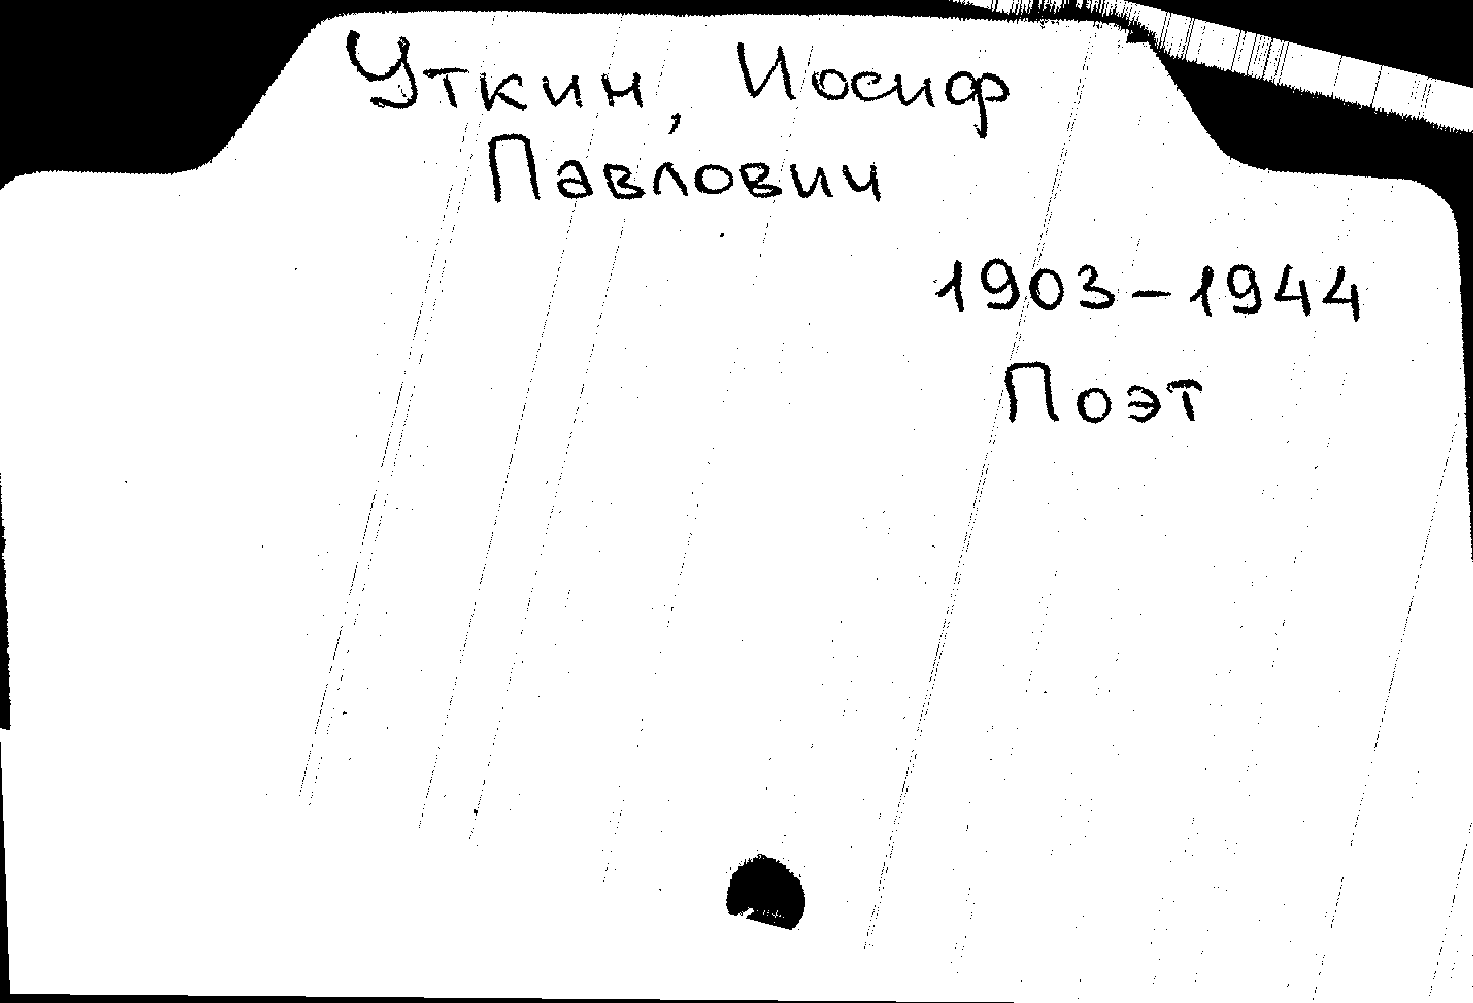 Уткин, Иосиф
Павлович
1903-1944
Поэт